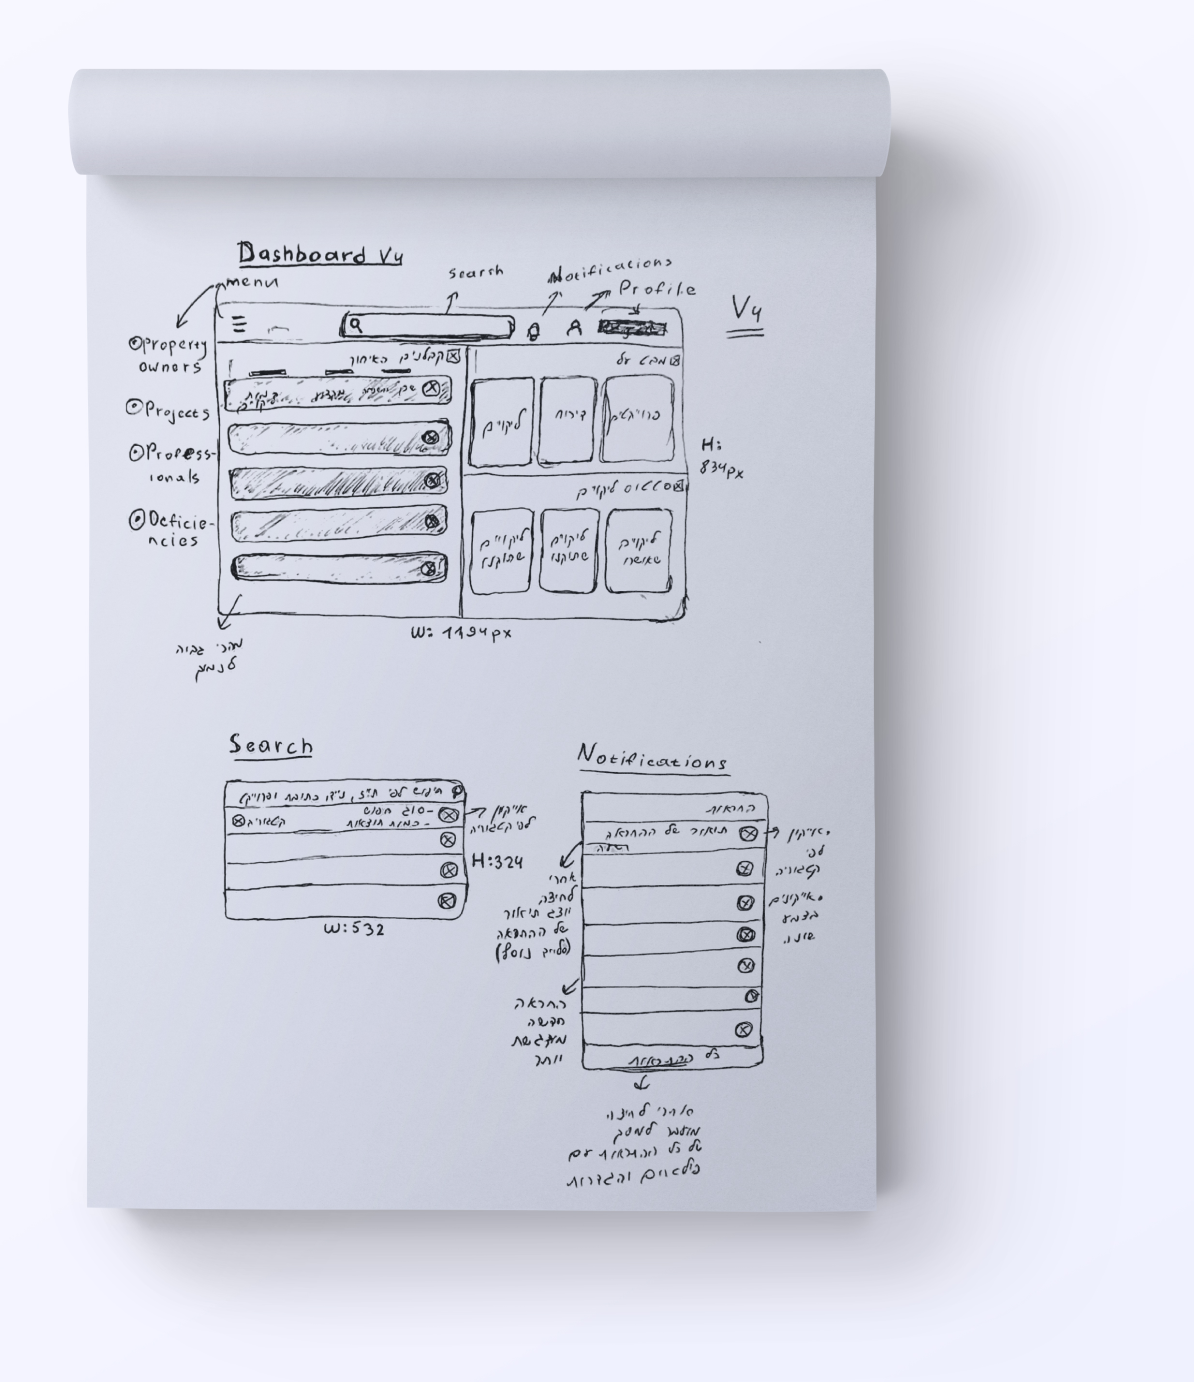 Dashboard V4
menu
Search
Notifications
Profile
V4
Property
owners
Projects
Profess-
ionals
Deficie-
ncies
קבלנים האיחור
מבט על
פרוייקטים
דירות
ליקויים
H:
834px
סטטוס ליקויים
ליקויים
שאושרו
ליקויים
שתוקנו
ליקויים
W: 1194px
מהכי גבוה
לנמוך
Search
חיפוש לפי ת״ז, נייד, כתובת ופרוייקט
- סוג חיפוש
- כמות תוצאות
קטגוריה
אייקון
לפי קטגוריה
H:324
W:532
Notifications
התראות
תיאור של ההתראה
אייקון
לפי
קטגוריה
אייקונים
בצבע
שונה
אחרי
לחיצה
יוצג תיאור
של ההתראה
התראה
חדשה
מודגשת
יותר
כל ההתראות
אחרי לחיצה
מועבר למסך
של כל ההתראות עם
פילטרים והגדרות